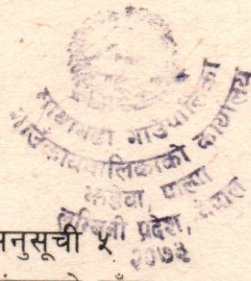 माथागढी गाउँपालिका
गाउँकार्यपालिकाको कार्यालय
झडेवा, पाल्पा
लुम्बिनी प्रदेश, नेपाल
२०७३
अनुसूची ५